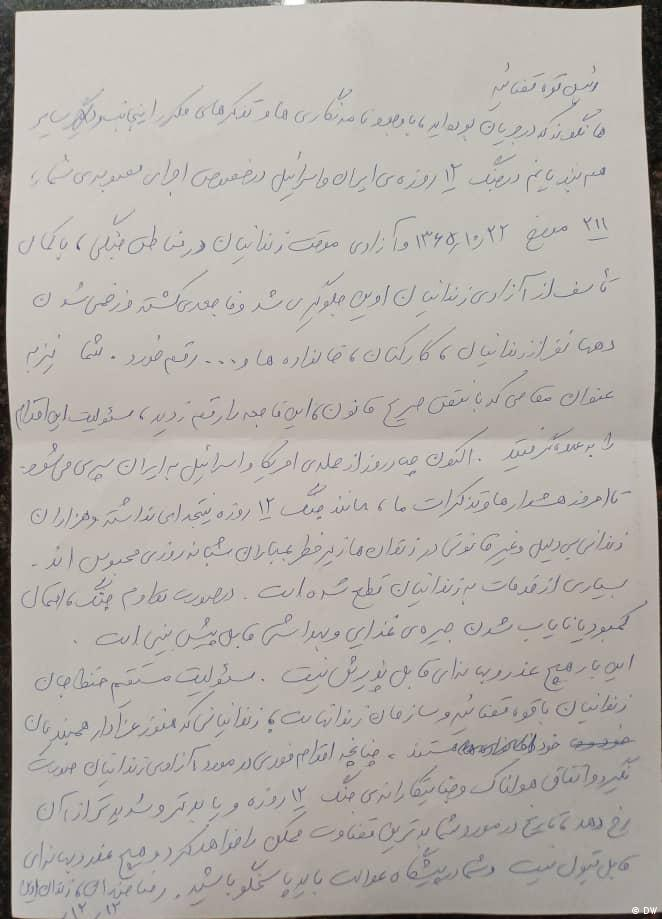 رئیس قوه قضائیه
همانگونه که در جریان بوده‌اید، با وجود نامه‌نگاری‌ها و تذکرهای مکرر اینجانب و دیگر سایر
هم‌بندیانم در جنگ ۱۲ روزه‌ی ایران و اسرائیل در خصوص اجرای مصوبه‌ی شماره
۲۱۱ مورخ ۱۳۶۵,۱۰,۲۲ و آزادی موقت زندانیان در مناطق جنگی، با کمال
تأسف از آزادی زندانیان اوین جلوگیری شد و فاجعه‌ی کشته و زخمی شدن
دهها نفر از زندانیان، کارکنان، خانواده‌ها و ... رقم خورد. شما نیز به
عنوان مقامی که با نقض صریح قانون، این فاجعه را رقم زدید، مسئولیت این اقدام
را به عهده گرفتید. اکنون چند روز از حمله‌ی امریکا و اسرائیل به ایران سپری می‌شود.
تا امروز هشدارها و تذکرات ما، مانند جنگ ۱۲ روزه نتیجه‌ای نداشته و هزاران
زندانی بی‌دلیل و غیرقانونی در زندان‌ها زیر خطر بمباران شبانه‌روزی محبوس‌اند.
بسیاری از خدمات به زندانیان قطع شده است. در صورت تداوم جنگ، احتمال
کمبود یا نایاب شدن جیره‌ی غذایی و بهداشتی قابل پیش‌بینی است.
این بار هیچ عذر و بهانه‌ای قابل پذیرش نیست. مسئولیت مستقیم حفظ جان
زندانیان با قوه قضائیه و سازمان زندانهاست، زندانیانی که هنوز عزادار همبندیان
خود هستند. چنانچه اقدام فوری در مورد آزادی زندانیان صورت
نگیرد و اتفاق هولناک و جنایتکارانه‌ی جنگ ۱۲ روزه و یا بدتر و شدیدتر از آن
رخ دهد، تاریخ در مورد شما بدترین قضاوت ممکن را خواهد کرد و هیچ عذر و بهانه‌ای
قابل قبول نیست و شما در پیشگاه عدالت باید پاسخگو باشید. رضا خندان، زندان اوین
۱۲,۱۲
© DW